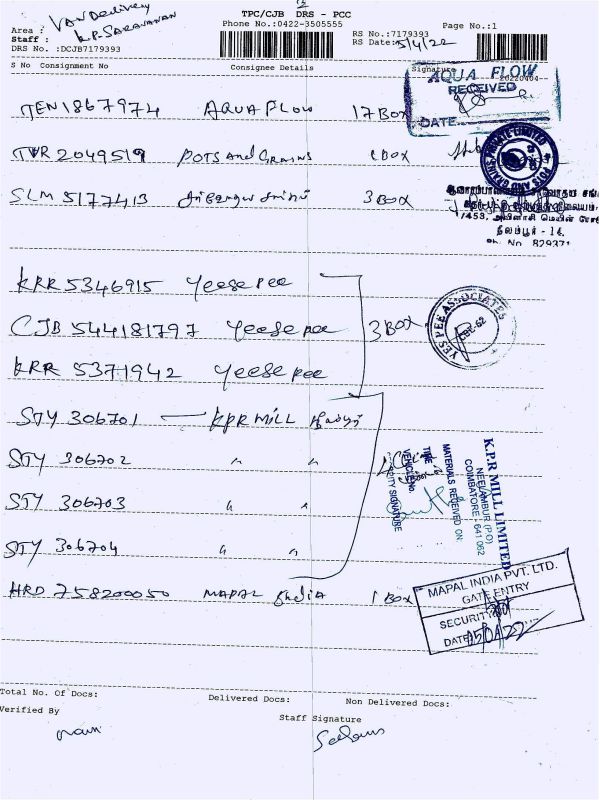 TPC/CJB DRS - PCC
Phone No.:0422-3505555
Page No.:1
Area : Van Delivery
Staff : K.P. SARAVANAN
DRS No. :DCJB7179393
RS No.:7179393
RS Date: 5/4/22
S No Consignment No Consignee Details Signature
20220404
TEN 1867974 AQUA FLOW 17 BOX
AQUA FLOW
RECEIVED
DATE
TVR 2049519 POTS AND GRAINS 1 BOX
SLM 5177413 3 BOX
1/453, அவினாசி மெயின் ரோடு
நீலம்பூர் - 14.
Ph. No. 829371
KRR 5346915 Yeese Pee
CJB 544181797 Yeese Pee 3 BOX
KRR 5371942 Yeese Pee
YES PEE ASSOCIATES
CBE-62
STY 306701 — KPR MILL நீலம்பூர்
STY 306702 " "
STY 306703 " "
STY 306704 " "
K.P.R MILL LIMITED
NEELAMBUR (P.O)
COIMBATORE - 641 062
MATERIALS RECEIVED ON:
TIME
VEHICLE No.
SECURITY SIGNATURE
HRD 758200050 MAPAL India 1 BOX
MAPAL INDIA PVT. LTD.
GATE ENTRY
SECURITY
DATE
Total No. Of Docs: Delivered Docs: Non Delivered Docs:
Verified By Staff Signature